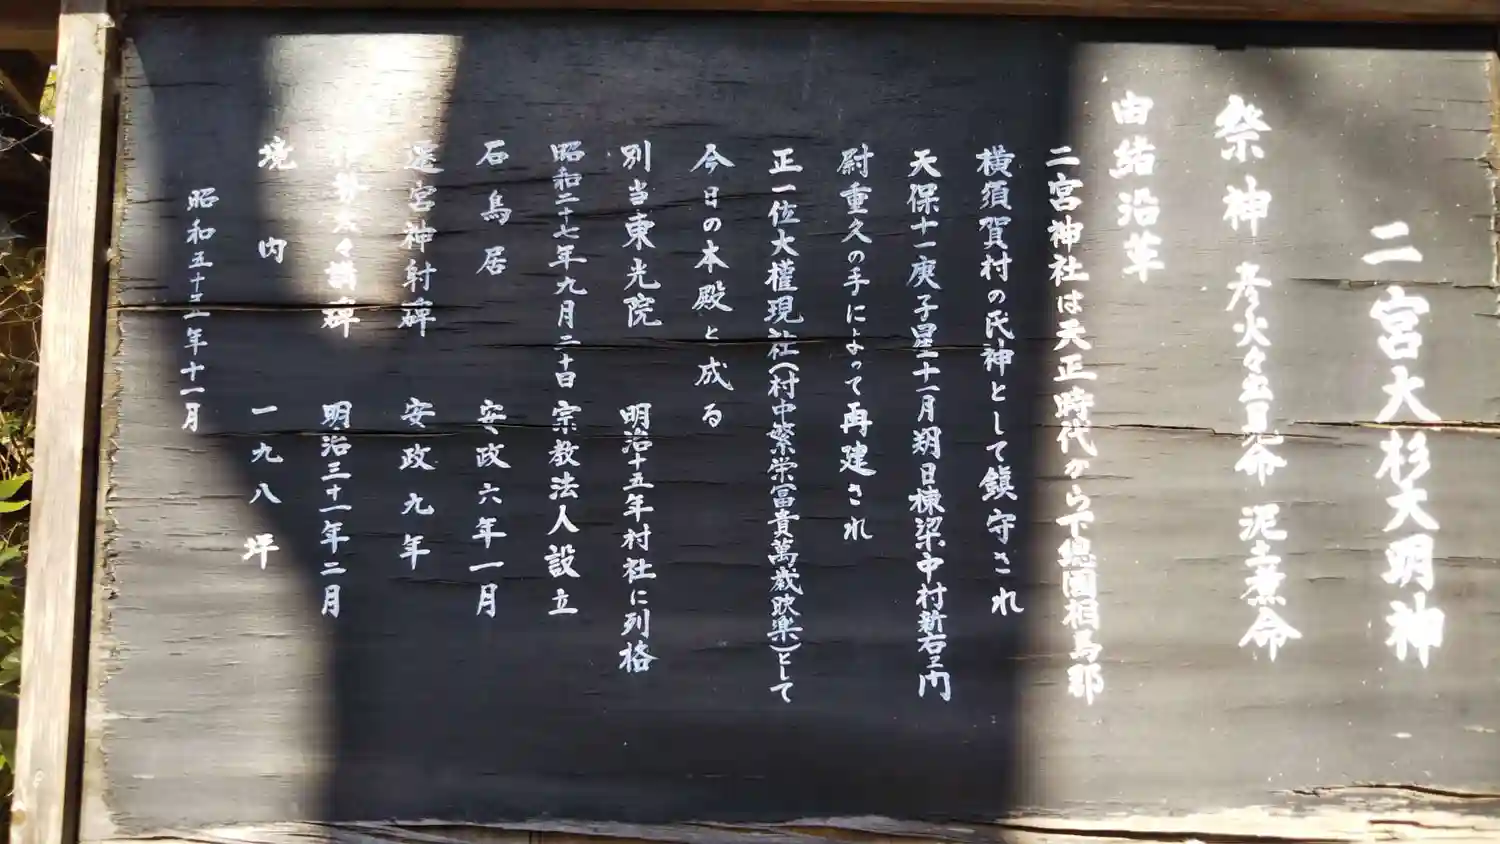 二宮大杉大明神
祭神 彦火々出見命 泥土煮命
由結沿革
二宮神社は天正時代から下總國相馬郡
横須賀村の氏神として鎮守され
天保十一庚子星十一月朔日棟梁中村新右ヱ門
尉重久の手によって再建され
正一位大權現社(村中繁栄冨貴萬歳欤楽)として
今日の本殿と成る
別当東光院 明治十五年村社に列格
昭和二十七年九月二十日宗教法人設立
石鳥居 安政六年一月
還宮神射碑 安政九年
伊勢太々講碑 明治三十一年二月
境内 一九八坪
昭和五十三年十一月